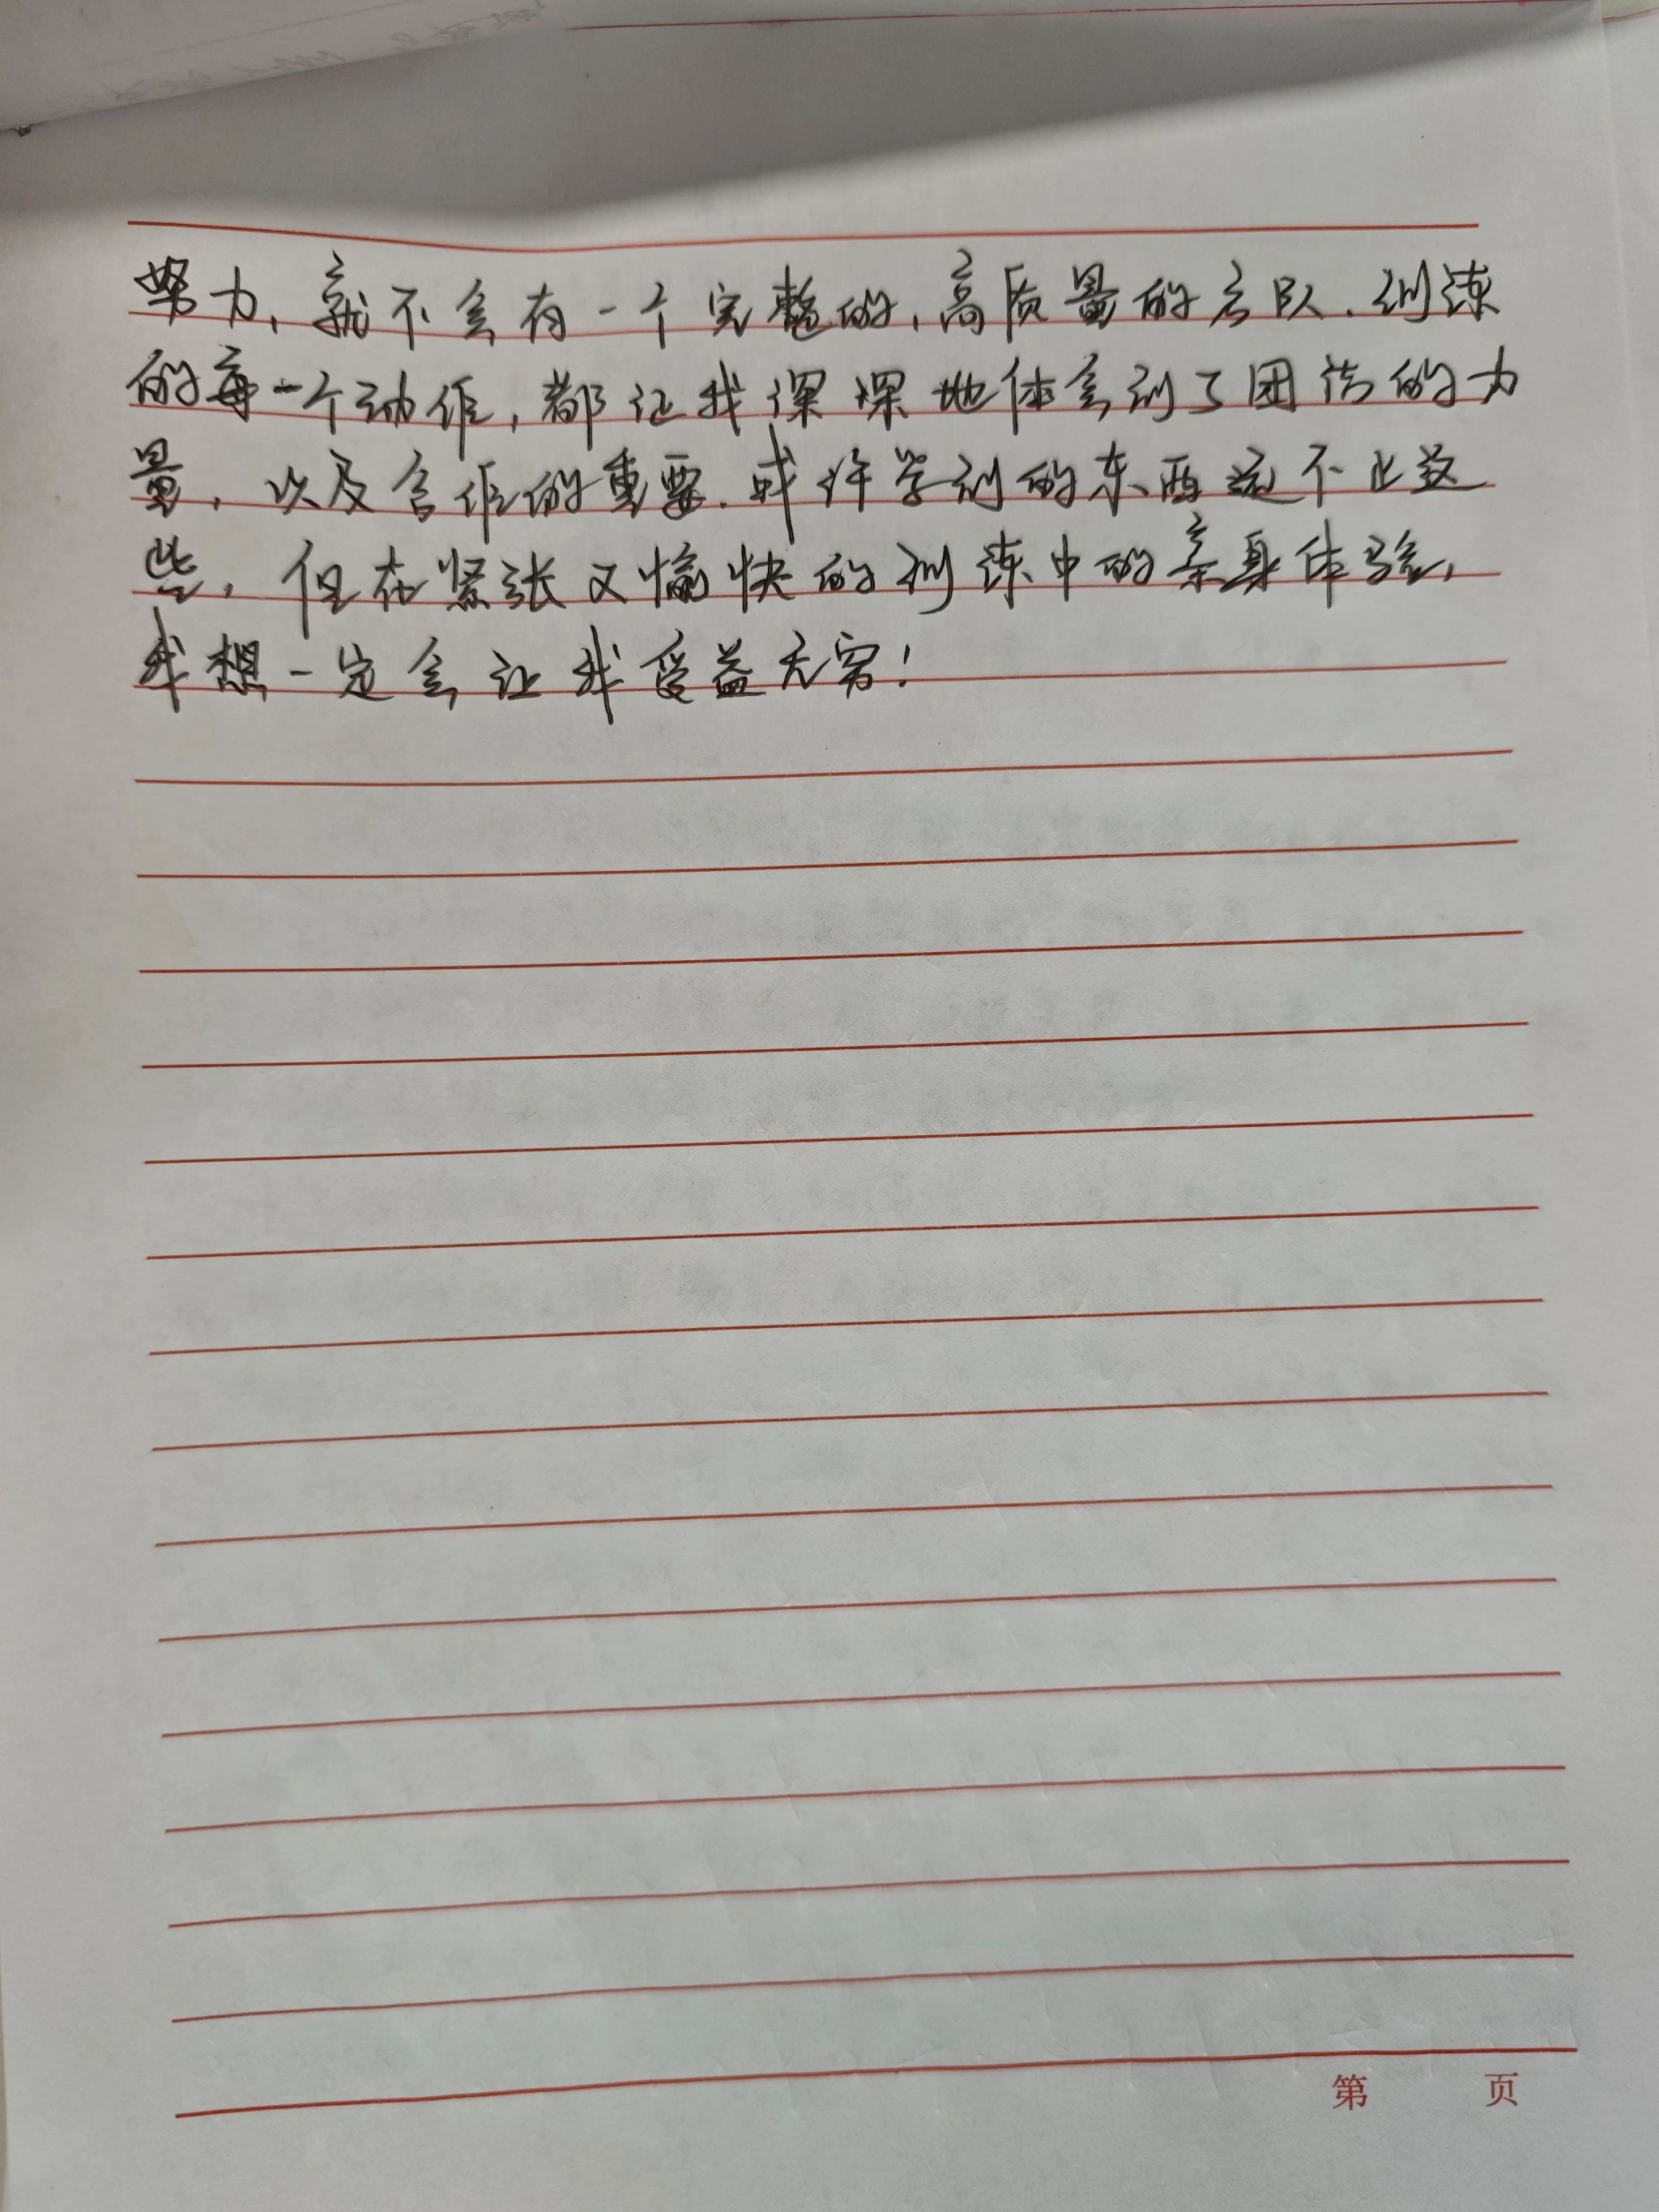 努力，就不会有一个完整的，高质量的方队．训练
的每一个动作，都让我深深地体会到了团结的力
量，以及合作的重要．或许学到的东西远不止这
些，但在紧张又愉快的训练中的亲身体验，
我想一定会让我受益无穷！
第 页